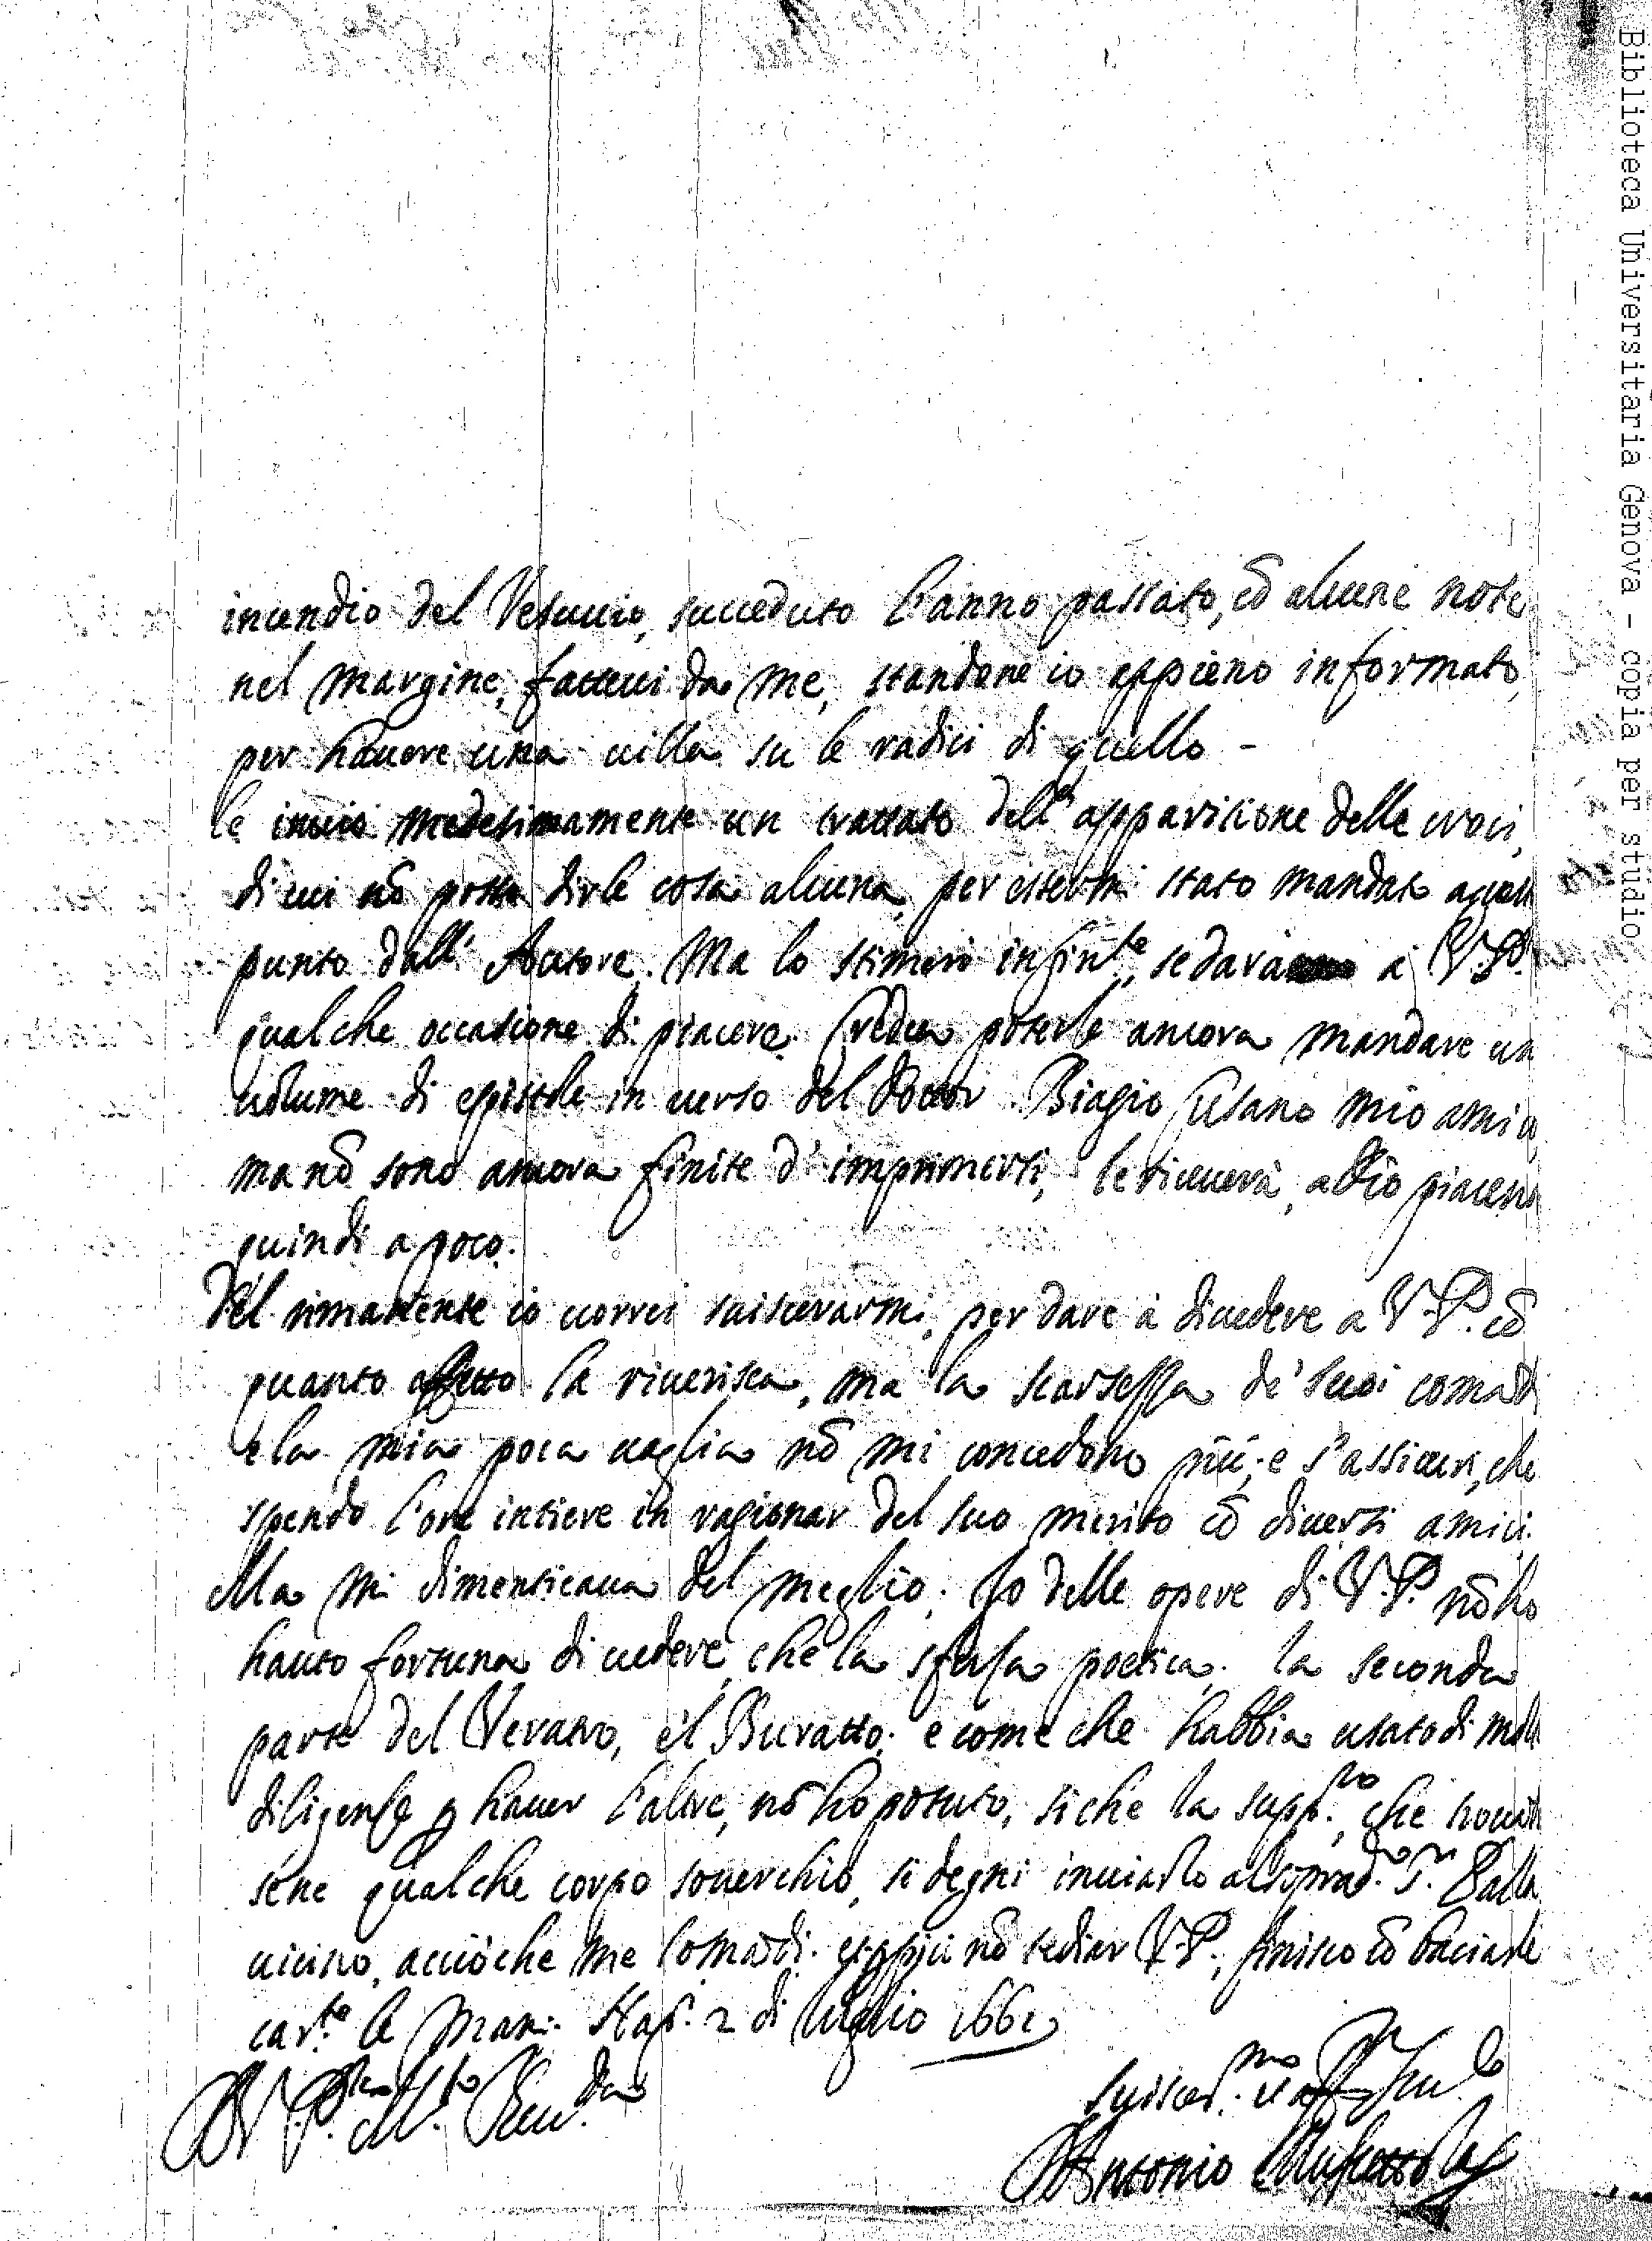 incendio del Vesuuio, succeduto l'anno passato, cō alcune note
nel margine, fatteui da me, standone io appieno informato,
per hauere una uilla su le radici di quello -
le inuio medesimamente un trattato dell' apparitione delle croci,
di cui nō posso dirle cosa alcuna, per essermi stato mandato
punto dall' Autore. Ma lo stimerò infinte, se darà a V.P.
qualche occasione di piacere. Credea poterle ancora mandare un
uolume di epistole in uerso del dottor Biagio Cusano mio amico
ma nō sono ancora finite d' imprimersi, le riceuerà, a Dio piacendo
quindi a poco.
Del rimanente io uorrei suiscerarmi, per dare à diuedere a V.P. cō
quanto affetto la riuerisca, ma la scarsezza de' suoi comādi
e la mia poca uaglia nō mi concedono più; e s'assicuri, che
spendo l'ore intiere in ragionar del suo merito cō diuersi amici.
Ma mi dimenticaua del meglio. Io delle opere di V.P. nō ho
hauto fortuna di uedere, che la sferza poetica, la seconda
parte del Veratro, e'l Buratto; e come che habbia usato di molte
diligenze p hauer l'altre, nō ho potuto, siche la suppco, che trouādo
sene qualche corpo souerchio, si degni inuiarlo al soprado Sr Palla
uicino, acciòche me lo mādi. e p più nō tediar V.P., finisco cō baciarle
carte le mani. Nap. 2 di luglio 1661
Di V.P. Molto Reuda
suiscermo ed Seruo
Antonio Muscettola
Biblioteca Universitaria Genova - copia per studio